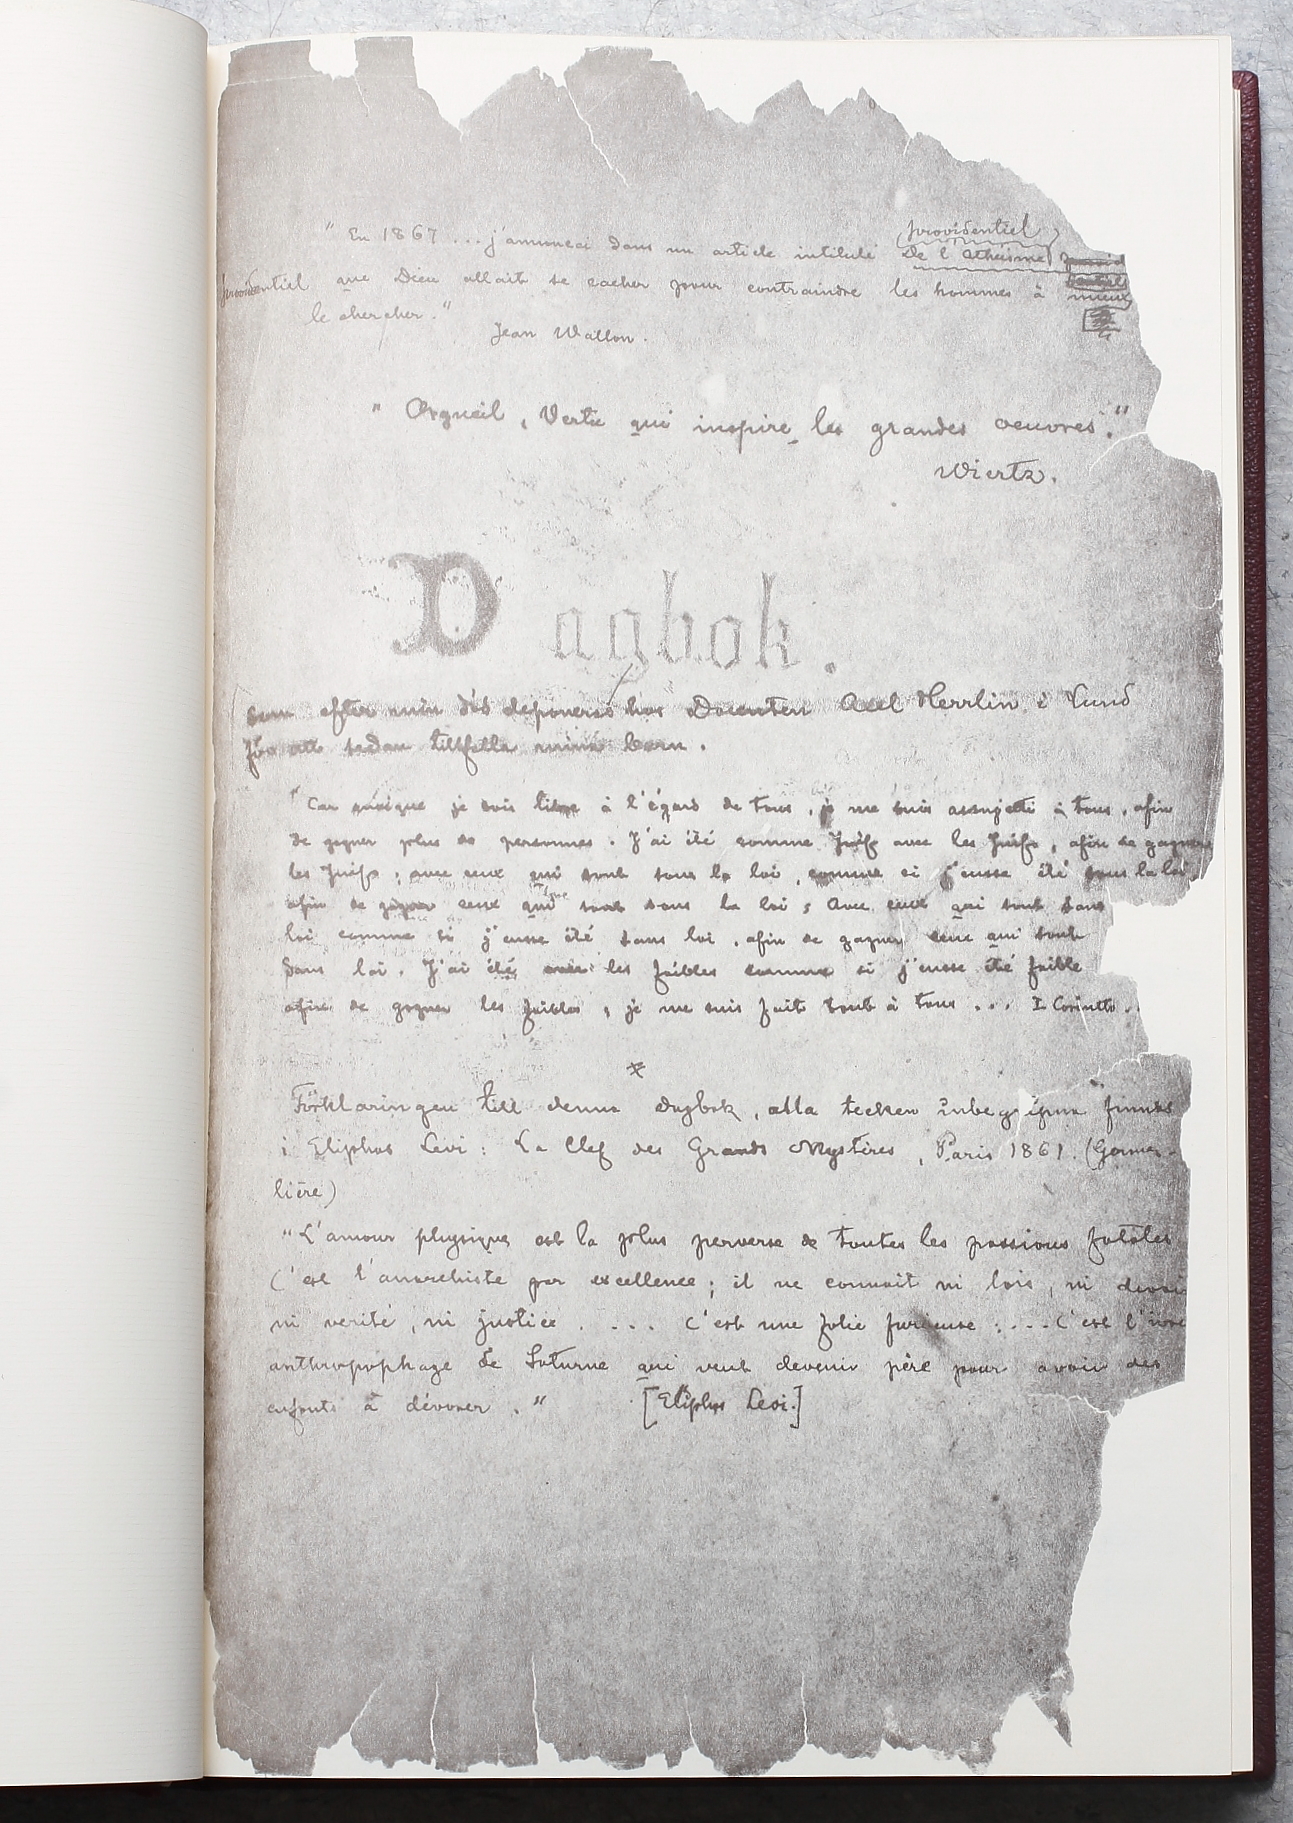 providentiel
" En 1867 ... j'annoncai dans un article intitulé De l'athéisme
providentiel que Dieu allait se cacher pour contraindre les hommes à mieux
le chercher."
Jean Wallon.
" Orgueil, Vertu qui inspire les grandes oeuvres."
Wiertz.
Dagbok.
som efter min död deponeras hos Docenten Axel Herrlin i Lund
för att sedan tillfalla mina barn.
" Car quoique je sois libre à l'égard de tous, je me suis assujetti à tous, afin
de gagner plus de personnes. J'ai été comme Juif avec les Juifs, afin de gagner
les Juifs; avec ceux qui sont sous la loi, comme si j'eusse été sous la loi
afin de gagner ceux qui sont sous la loi; avec ceux qui sont sans
loi comme si j'eusse été sans loi, afin de gagner ceux qui sont
sans loi. J'ai été avec les faibles comme si j'eusse été faible
afin de gagner les faibles, je me suis fait tout à tous ... I Corinth..
Förklaringen till denna dagbok, alla tecken inbegripna finnes
i Eliphas Levi: La Clef des Grands Mystères, Paris 1861. (Germer-
lière)
"L'amour physique est la plus perverse de toutes les passions fatales
C'est l'anarchiste par excellence; il ne connait ni lois, ni devoi
ni verité, ni justice .... C'est une folie furieuse; ... C'est l'ivre
anthropophage de Saturne qui veut devenir père pour avoir des
enfants à dévorer."  [Eliphas Levi.]